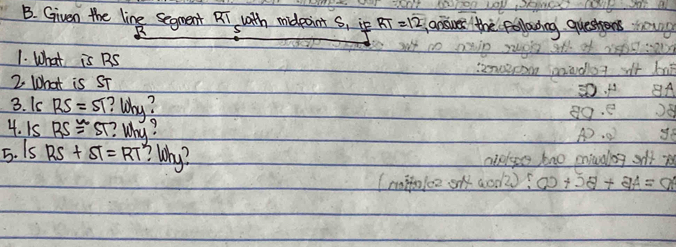 B. Given the line segment RT with midpoint S, if RT = 12, answer the following questions
R S T
1. What is RS
2. What is ST
3. Is RS = ST? Why?
4. Is RS ≅ ST? Why?
5. Is RS + ST = RT? Why?